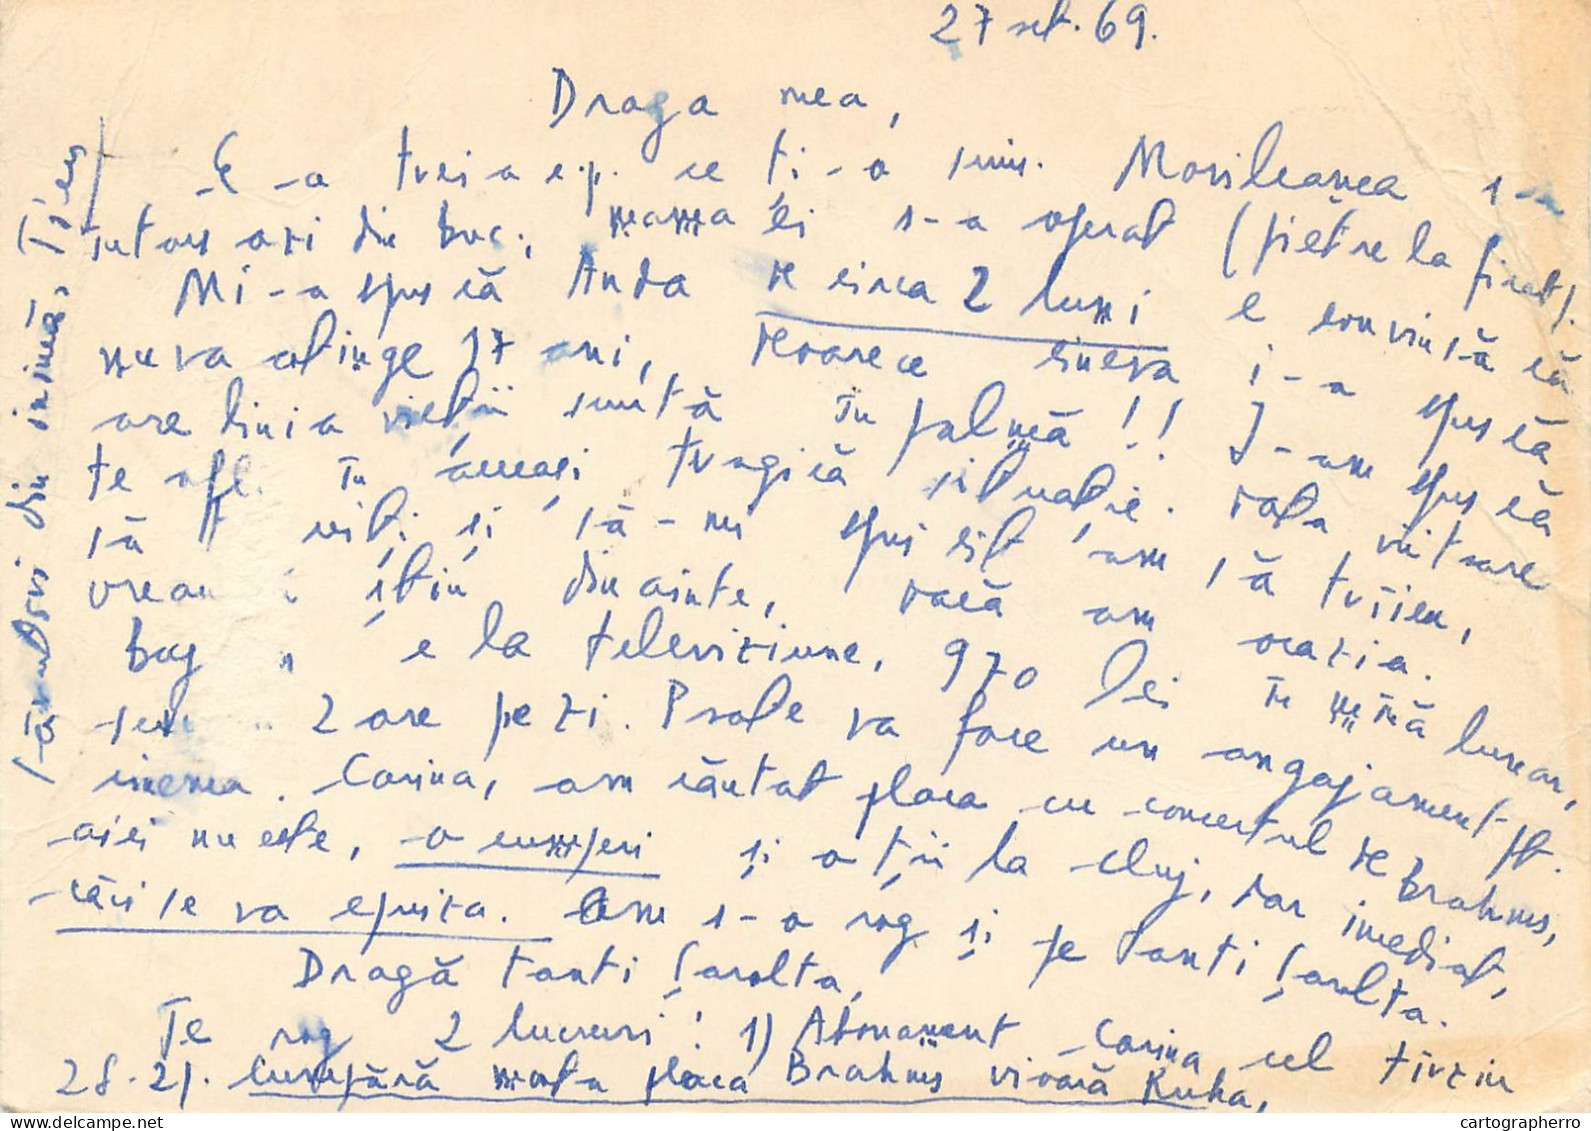 27 set. 69.
Draga mea,
E-a treia c.p. ce ți-o scriu. Movileanca s-a
întors azi din Buc., mama ei s-a operat (pietre la ficat).
Mi-a spus că Anda de circa 2 luni e convinsă că
nu va atinge 17 ani, deoarece cineva i-a spus că
are linia vieții scurtă în palmă!! I-am spus că
te afl în aceeași tragică situație. Data viitoare
să vii și să-mi spui cît am să trăiesc,
vreau să știu dinainte, dacă am ocazia.
bag e la televiziune, 970 lei în mînă lunar,
2 ore pe zi. Poate va face un angajament pt.
cinema. Corina, am căutat placa cu concertul de Brahms,
aici nu este, o cumperi și o ții la Cluj, dar imediat,
căci se va epuiza. Am s-o rog și pe tanti Șarolta.
Dragă tanti Șarolta,
Te rog 2 lucruri! 1) Abonament Corina cel tîrziu
28.21. cumpără mata placa Brahms vioară Kuha,
Sărutări din inimă,